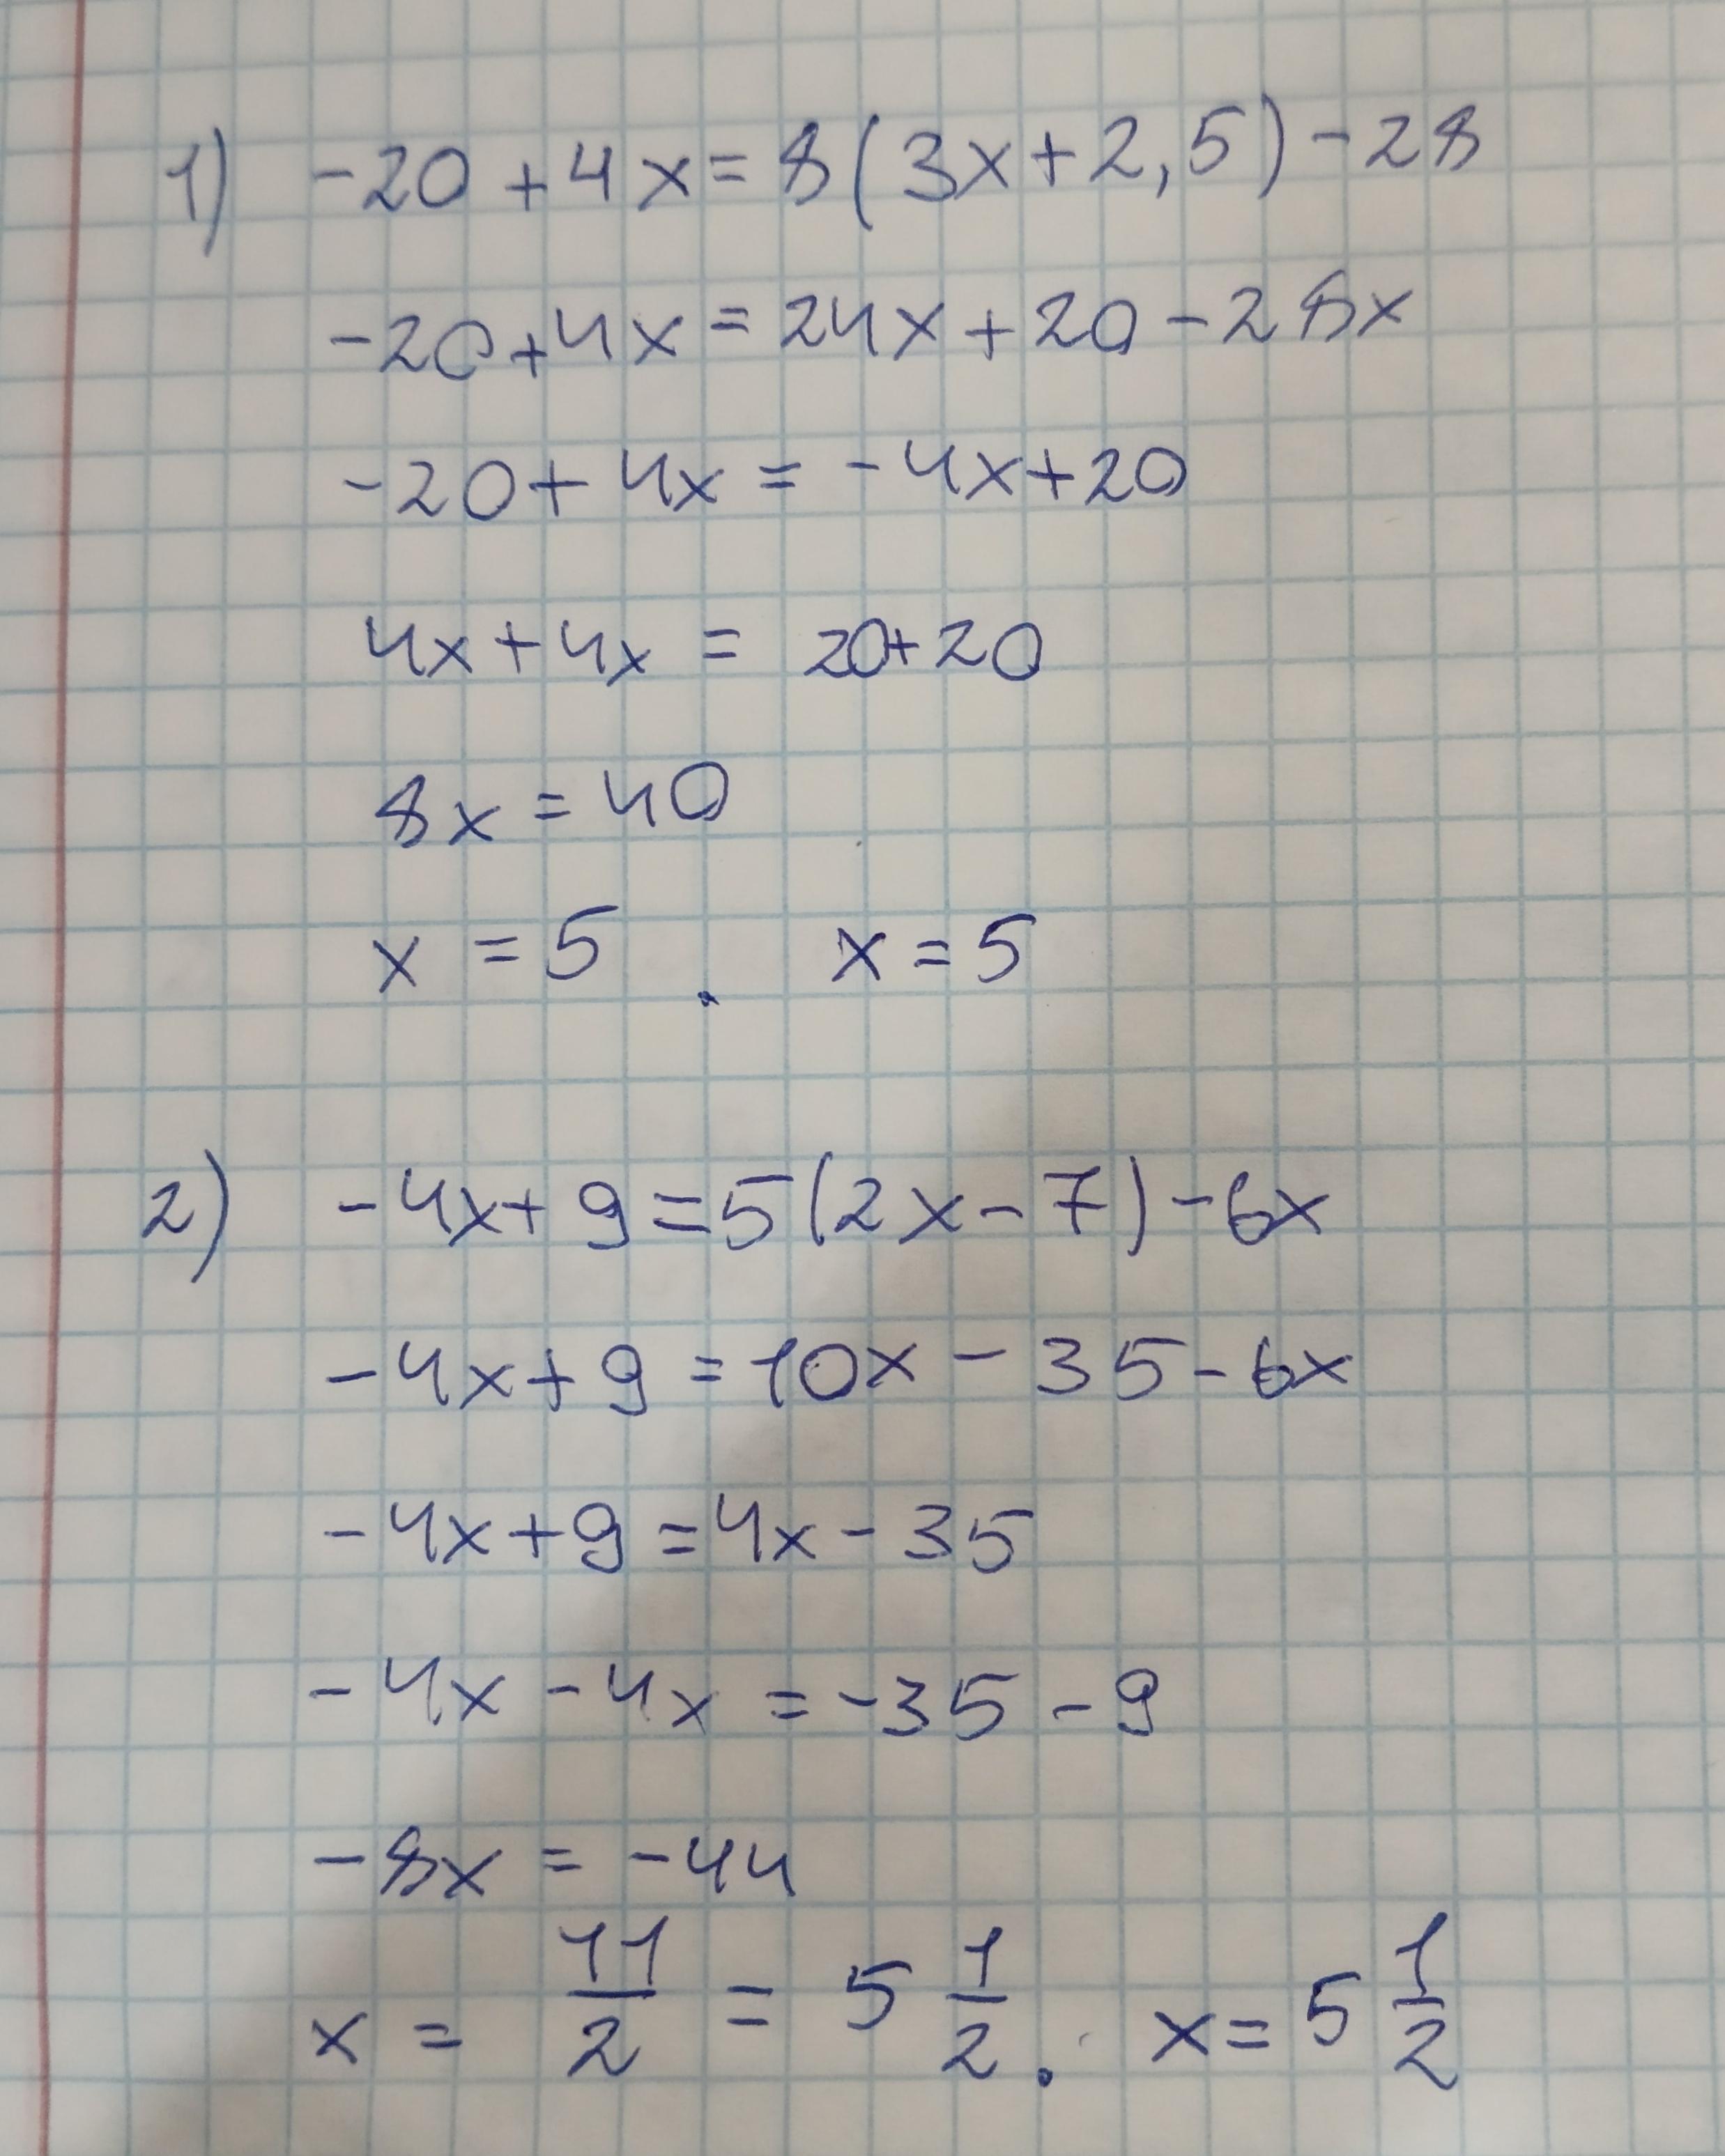 1) -20+4x=8(3x+2,5)-28
-20+4x=24x+20-28x
-20+4x=-4x+20
4x+4x=20+20
8x=40
x=5. x=5
2) -4x+9=5(2x-7)-6x
-4x+9=10x-35-6x
-4x+9=4x-35
-4x-4x=-35-9
-8x=-44
x=11/2=5 1/2. x=5 1/2